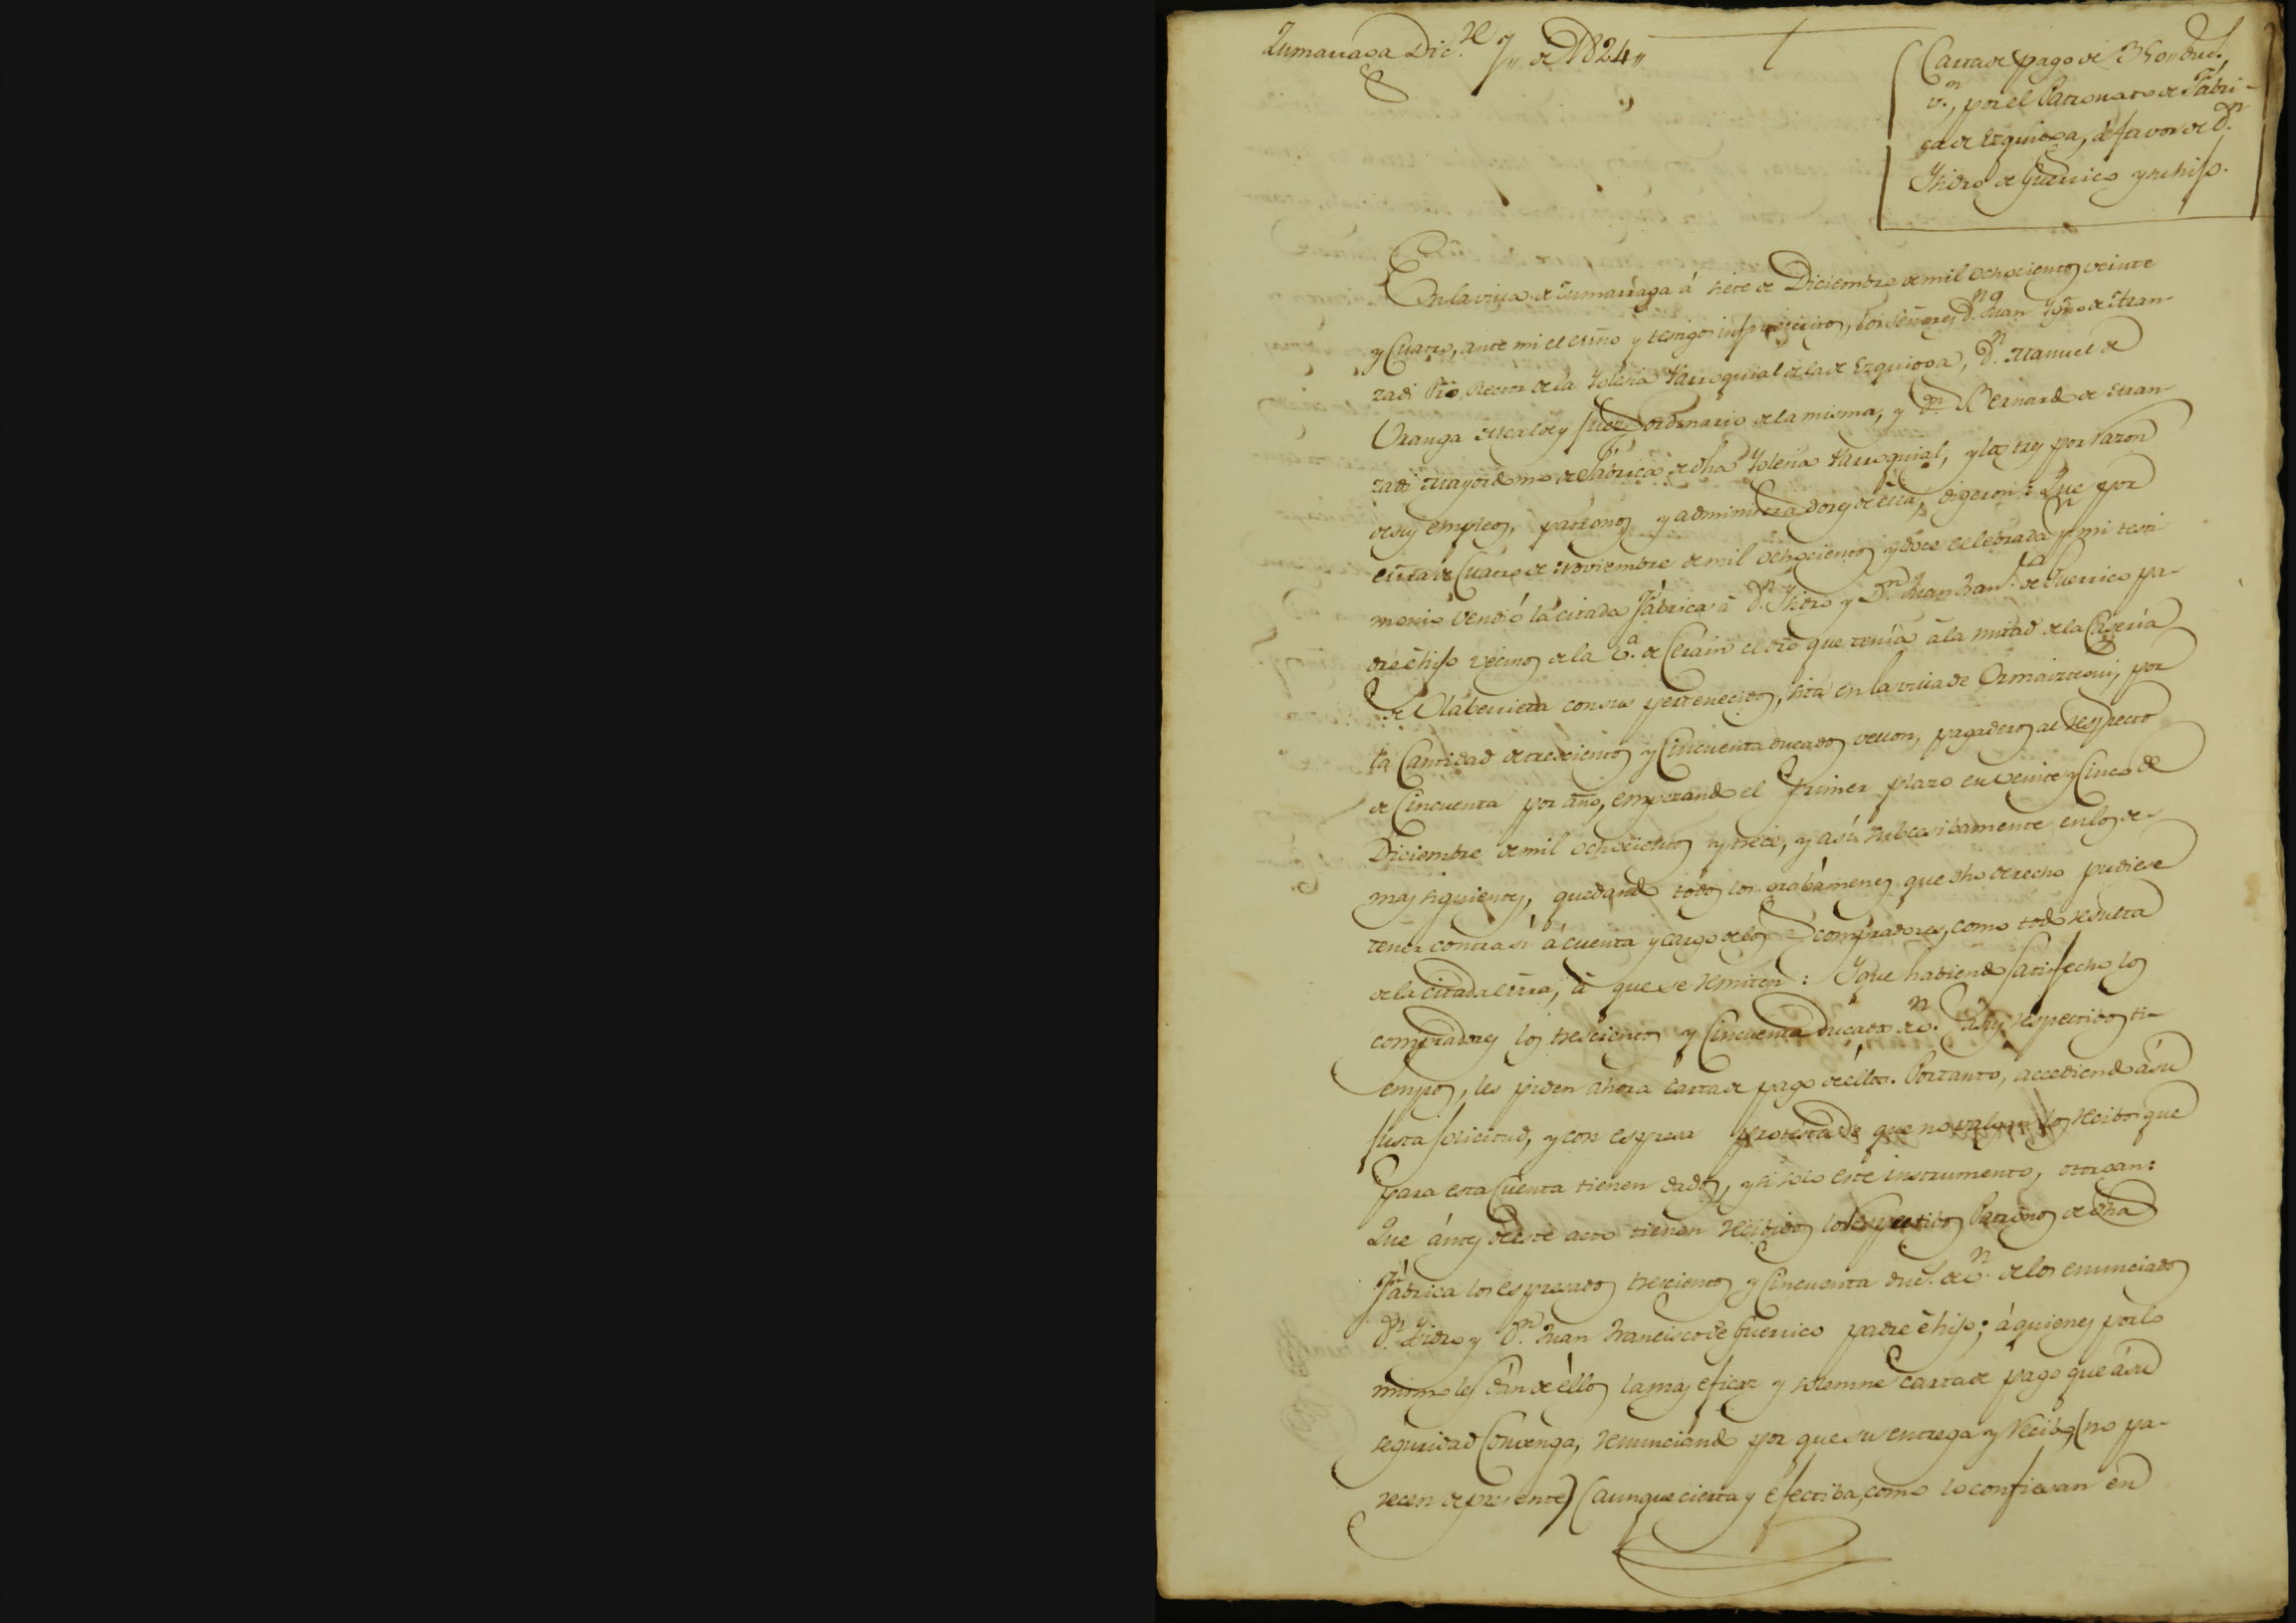 Zumarraga Dic.re 7,, de 1824,,
Carta de pago de 350,, duc.s
v.n, por el Patronato de Fábri-
ca de Ezquioga, á favor de D.n
Ysidro de Guerrico y su hijo.
En la villa de Zumarraga á siete de Diciembre de mil ochocientos veinte
y Cuatro, ante mi el esno y testigos infrascritos, los señores D.n Juan Ygno de Aran-
zadi Pro Rector de la Yglesia Parroquial de la de Ezquioga, D.n Manuel de
Uranga Alcalde y Juez ordinario de la misma, y D.n Bernardo de Aran-
zadi Mayordomo de Fábrica de dha Yglesia Parroquial, y los tres por razon
de sus empleos, patronos y administradores de ella, digeron: Que por
esra de Cuatro de Noviembre de mil ochocientos y doce celebrada pr mi testi
monio vendió la citada Fábrica á D.n Ysidro y D.n Juan Fran.co de Guerrico pa-
dre é hijo vecinos de la V.a de Cerain el dro que tenía á la mitad de la Casería
de Olaberrieta con sus pertenecidos, sita en la villa de Ormaiztegui, por
la Cantidad de trescientos y Cincuenta ducados vellon, pagaderos al respecto
de Cincuenta por año, empezando el primer plazo en veinte y Cinco de
Diciembre de mil ochocientos y trece, y asi subcesibamente en los de-
mas siguientes, quedando todos los grabámenes que dho derecho pudiese
tener contra si á cuenta y cargo de los compradores, como todo resulta
de la citada esra, á que se remiten: Y que habiendo satisfecho los
compradores los trescientos y Cincuenta ducados de v.n á sus respectibos ti-
empos, les piden ahora carta de pago de éllos. Portanto, accediendo á su
justa solicitud, y con espresa protesta de que no valgan los recibos que
para esta Cuenta tienen dados, y si solo este instrumento, otorgan:
Que ántes de este acto tienen recibidos los respectibos Patronos de dha
Fábrica los espresados trescientos y Cincuenta duc.s de v.n de los enunciados
D.n Ysidro y D.n Juan Francisco de Guerrico padre é hijo; á quienes por lo
mismo les dán de éllos la mas eficaz y solemne carta de pago que á su
seguridad Convenga, renunciando por que su entrega y Recibo, (no pa-
recen de presente) (aunque cierta y efectiba, como lo confiesan en